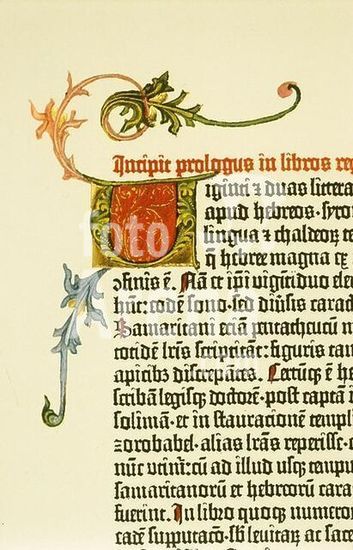 Incipit prologus in libros re
Uiginti ⁊ duas littera
apud hebreos · syro
lingua ⁊ chaldeoꝝ te
q̃ hebree magna ex
ꝯfinis ē. Nã et ip̃i vigīti duo ele
hn̄t: eodē sono · sed diũsis carac
Samaritani eciã pentatheucũ m
totidē lr̃is scriptitãt: figuris tan
apicibꝫ discrepãtes. Certũqꝫ ē h
scribã legisqꝫ doctorē · post captã i
solimã · et in stauracionē templi
zorobabel · alias lr̃as repperisse · q
nũc utim̃: cũ ad illud usqꝫ tempu
samaritanorũ et hebreorũ carac
fuerint. In libro quoqꝫ numero
eadē supputacõ · sb leuitaꝝ ac sac